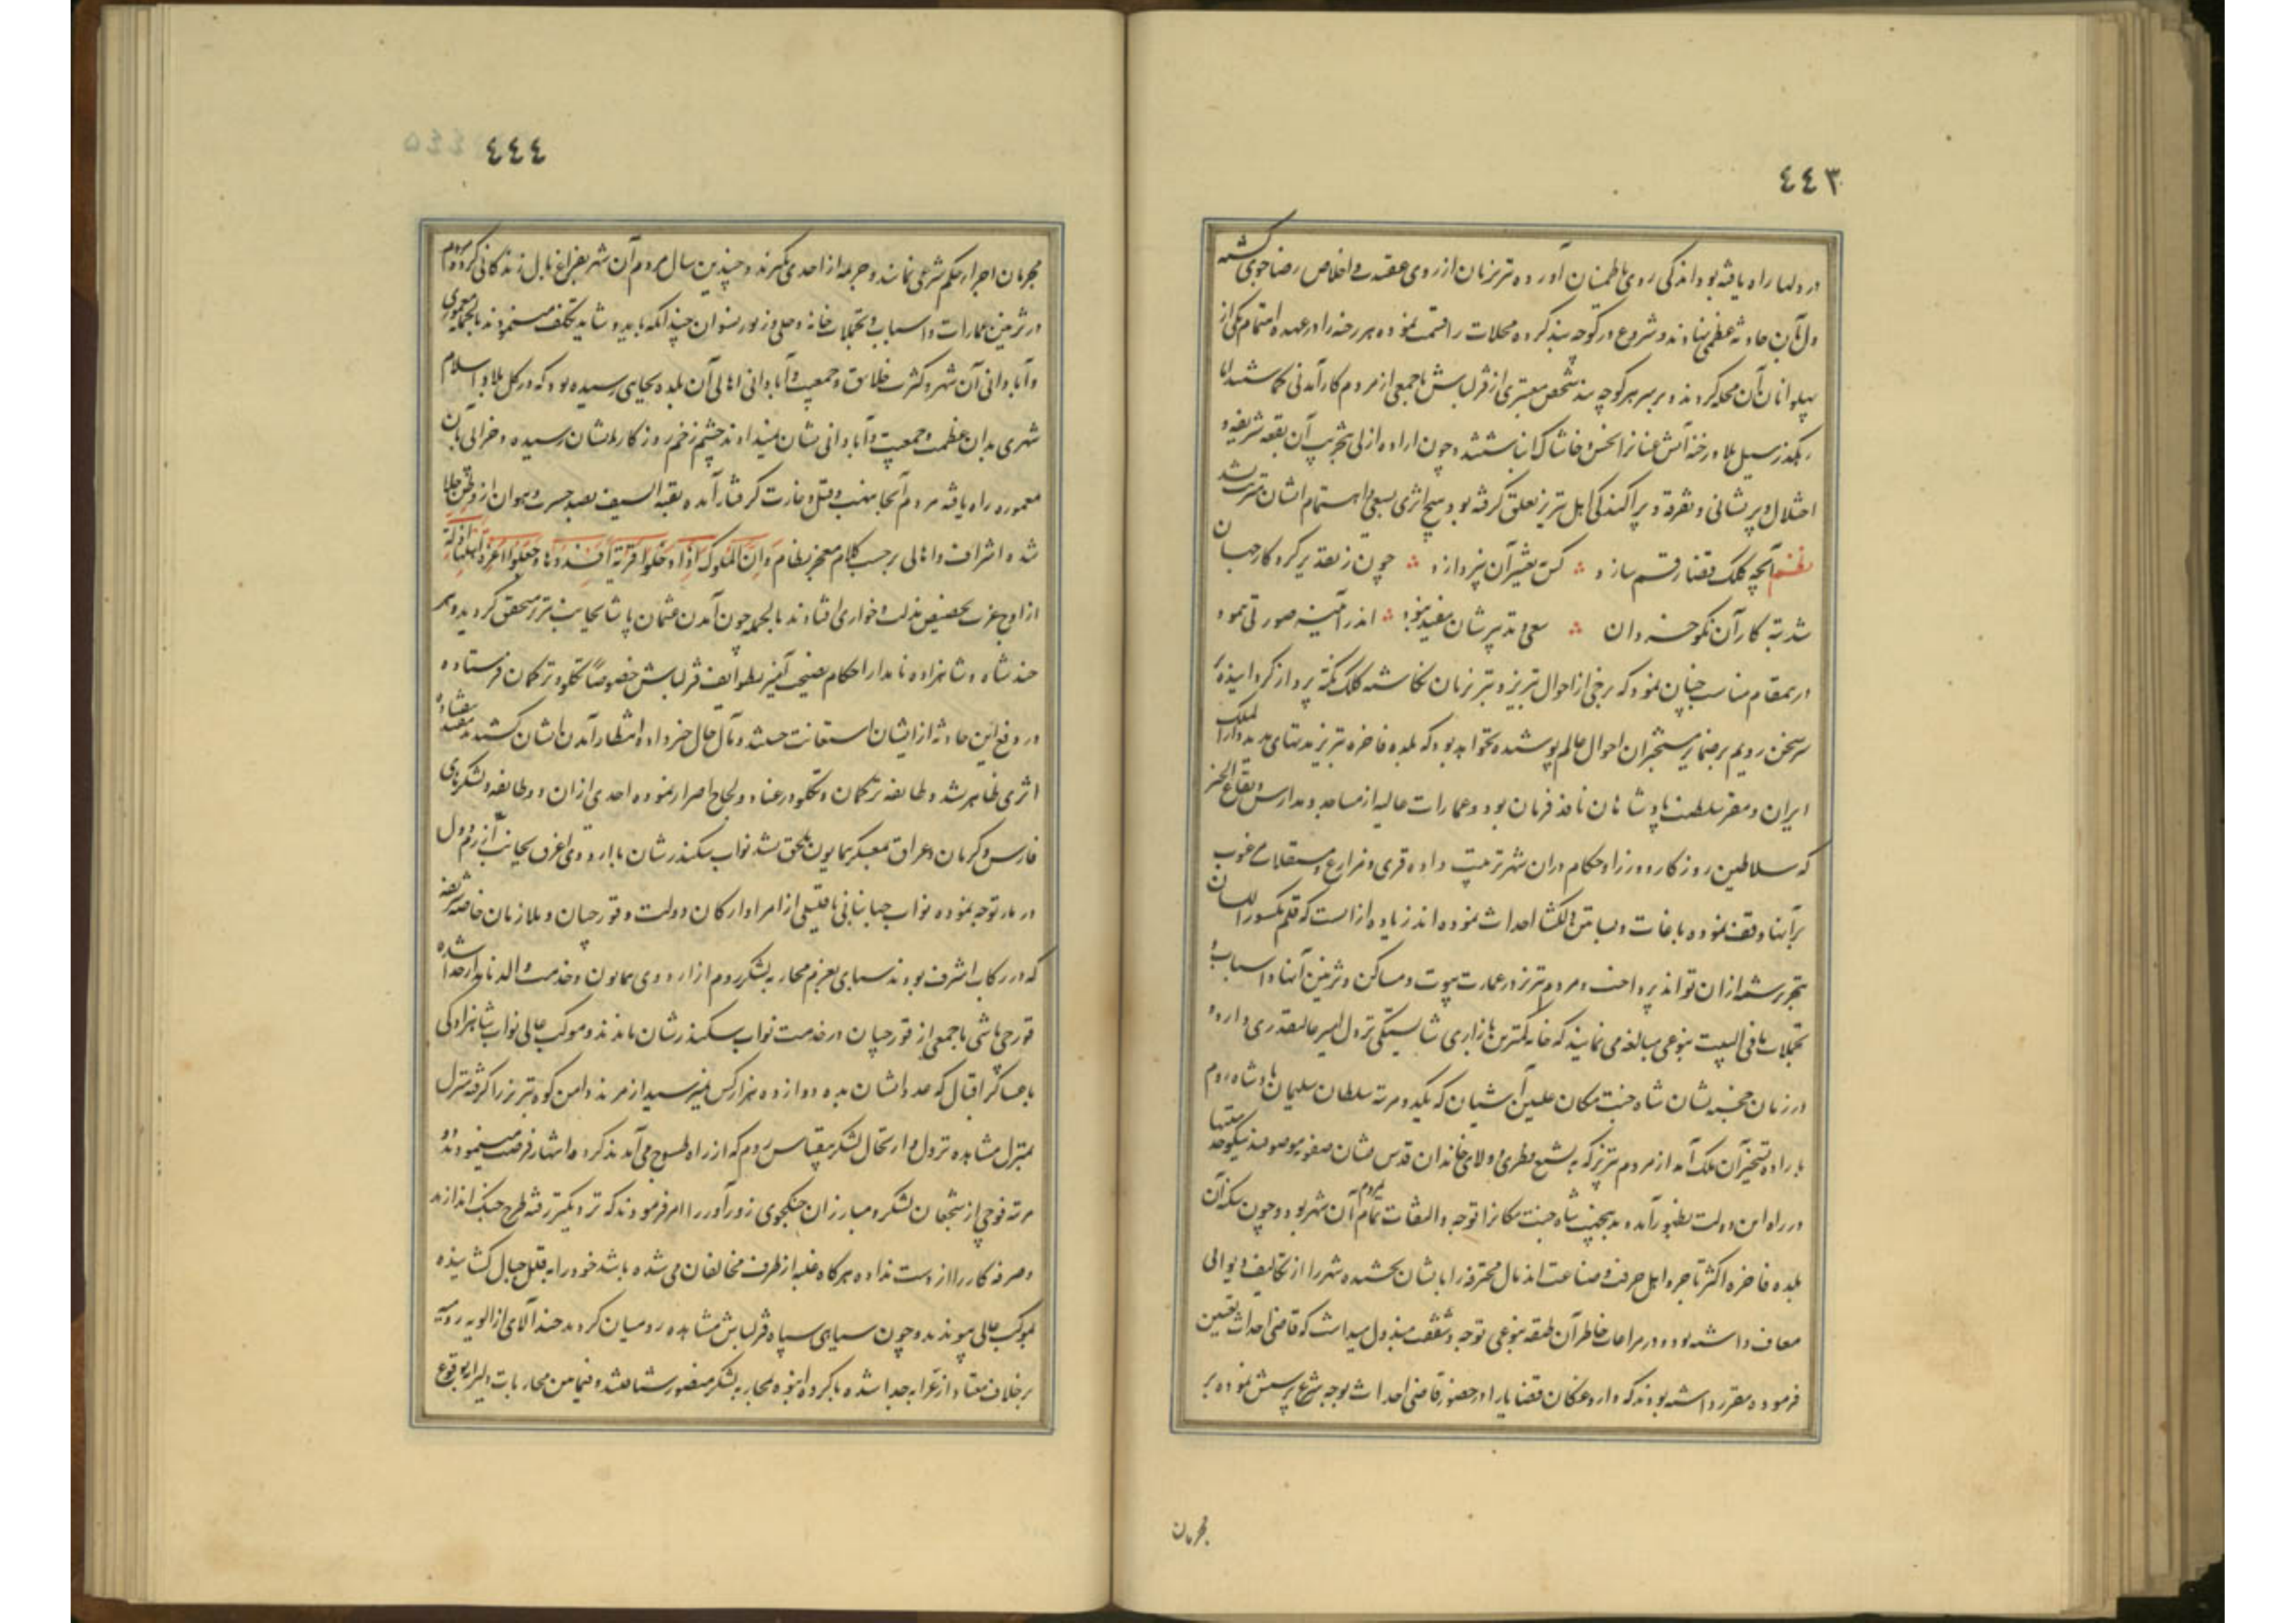 ٤٤٣
در دلها راه یافته بود اندکی روی باطمینان آورده تبریزیان از روی عقیدت و اخلاص رضاجوی گشته
دل بآن حادثه عظمی نهادند و شروع در کوچه بند کرده محلات را قسمت نموده هر رخنه را در عهده اهتمام یکی از
پهلوانان آن محله کردند و بر سر هر کوچه بند شخص معتبری از قزلباش با جمعی از مردم کارآمدنی گماشتند اما
رهگذر سیل بلا و رخنه آتش عنا را بخس و خاشاک انباشتند و چون اراده ازلی بتخریب آن بقعه شریفه و
اختلال و پریشانی و تفرقه و پراکندگی اهل تبریز تعلق گرفته بود هیچ اثری بسعی و اهتمام ایشان مترتب نشد
نظم آنچه کلک قضا رقم سازد کس بتغییر آن نپردازد چون ز تقدیر کردگار جهان
شد تبه کار آن نکو خردان سعی و تدبیرشان مفید نبود اندر آئینه صورتی ننمود
درین مقام مناسب چنان نمود که برخی از احوال تبریز و تبریزیان نگاشته کلک نکته پرداز گردانیده
سر سخن رویم بر ضمایر مستخبران احوال عالم پوشیده نخواهد بود که بلده فاخره تبریز مدتهای مدید دار الملک
ایران و مقر سلطنت پادشاهان نافذ فرمان بود و عمارات عالیه از مساجد و مدارس و بقاع الخیر
که سلاطین روزگار و وزرا و حکام در آن شهر ترتیب داده قری و مزارع و مستغلات مرغوب
بر آنها وقف نموده باغات و بساتین دلگشا احداث نموده اند زیاده از آنست که قلم مکسور اللسان
بتحریر شمه از آن تواند پرداخت و مردم تبریز در عمارت بیوت و مساکن و تزئین آنها و اسباب و
تجملات ما فی البیت بنوعی مبالغه می نمایند که خانه کمترین بازاری شایستگی نزول امیر عالیقدری دارد و
در زمان خجسته نشان شاه جنت مکان علیین آشیان که یکدو مرتبه سلطان سلیمان پادشاه روم
باراده تسخیر آن ملک آمد از مردم تبریز که به تشیع فطری و ولای خاندان قدس نشان صفویه موصوفند نیکو خدمتیها
در راه این دولت بظهور آمده بدینجهت شاه جنت مکانرا توجه و التفات تمام بمردم آن شهر بود و چون سکنه آن
بلده فاخره اکثر تاجر و اهل حرفت و صناعت اند مال محترفه را بایشان بخشیده شهر را از تکالیف دیوانی
معاف داشته بود و در مراعات خاطر آن طبقه بنوعی توجه و شفقت مبذول میداشت که قاضی احداث تعیین
فرموده مقرر داشته بودند که داروغگان قضایا را در حضور قاضی احداث بوجه شرع پرسش نموده بر
مجرمان
٤٤٤
مجرمان اجرای حکم شرعی نمایند و جریمه از احدی نگیرند و چندین سال مردم آن شهر بفراغ بال زندگانی کرده مردم
در تزئین عمارات و اسباب و تجملات خانه و حلی و زیور نسوان چندانکه باید و شاید تکلف مینمودند بالجمله معموری
و آبادانی آن شهر و کثرت خلایق و جمعیت و آبادانی اهالی آن بلده بجایی رسیده بود که در کل بلاد اسلام
شهری بدان عظمت و جمعیت و آبادانی نشان نمیدادند چشم زخم روزگار بدیشان رسیده و خرابی بآن
معموره راه یافته مردم آنجا بنهب و قتل و غارت گرفتار آمده بقیه السیف بصد حسرت و هوان از وطن جلا
شده اشراف و اهالی بر حسب کلام معجز نظام و ان الملوک اذا دخلوا قریة افسدوها و جعلوا اعزة اهلها اذلة
از اوج عزت بحضیض مذلت و خواری افتادند بالجمله چون آمدن عثمان پاشا بجانب تبریز محقق گردید هر
چند شاه و شاهزاده نامدار احکام نصیحت آمیز بطوایف قزلباش خصوصاً تکلو و ترکمان فرستاده
در دفع این حادثه از ایشان استعانت جستند و مآل حال خبر داد و انتظار آمدن ایشان کشیدند
اثری ظاهر نشد و طایفه ترکمان و تکلو در عناد و لجاج اصرار نموده احدی از آن دو طایفه و لشکرهای
فارس و کرمان و عراق بمعسکر همایون ملحق نشد نواب سکندرشان با اردوی اغرق بجانب
توجه نموده نواب جهانبانی با قلیلی از امرا و ارکان دولت و قورچیان و ملازمان خاصه شریفه
که در رکاب اشرف بودند بعزم محاربه لشکر روم از اردوی همایون و خدمت والد نامدار جدا شده
قورچی باشی با جمعی از قورچیان در خدمت نواب سکندرشان ماندند و موکب عالی نواب شاهزادگی
با عساکر اقبال که عدد ایشان به ده دوازده هزار کس نمیرسید از مرند دامن کوه تبریز را گرفته منزل
بمنزل مشاهده نزول و ارتحال لشکر بیقیاس روم که از راه طسوج می آمدند کرده انتهاز فرصت مینمودند و دو
مرتبه فوجی از شجعان لشکر و مبارزان جنگجوی زورآور را امر فرمودند که نزدیکتر رفته طرح جنگ اندازند
و صرفه کار را از دست نداده هرگاه غلبه از طرف مخالفان می شده باشد خود را به قلل جبال کشانیده
بموکب عالی پیوندند و چون سیاهی سپاه قزلباش مشاهده رومیان گردید چند آلای از الویه رومیه
بر خلاف معتاد از عرابه جدا شده با گروه انبوه بمحاربه لشکر منصور شتافتند و فیمابین محاربات دلیرانه بوقوع